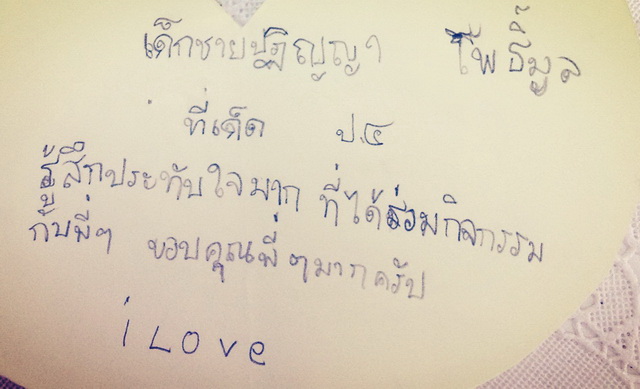 เด็กชายปฏิญญา โพธิ์มูล
ที่เด็ด ป.๔
รู้สึกประทับใจมาก ที่ได้ร่วมกิจกรรม
กับพี่ๆ ขอบคุณพี่ๆมากครับ
i Love